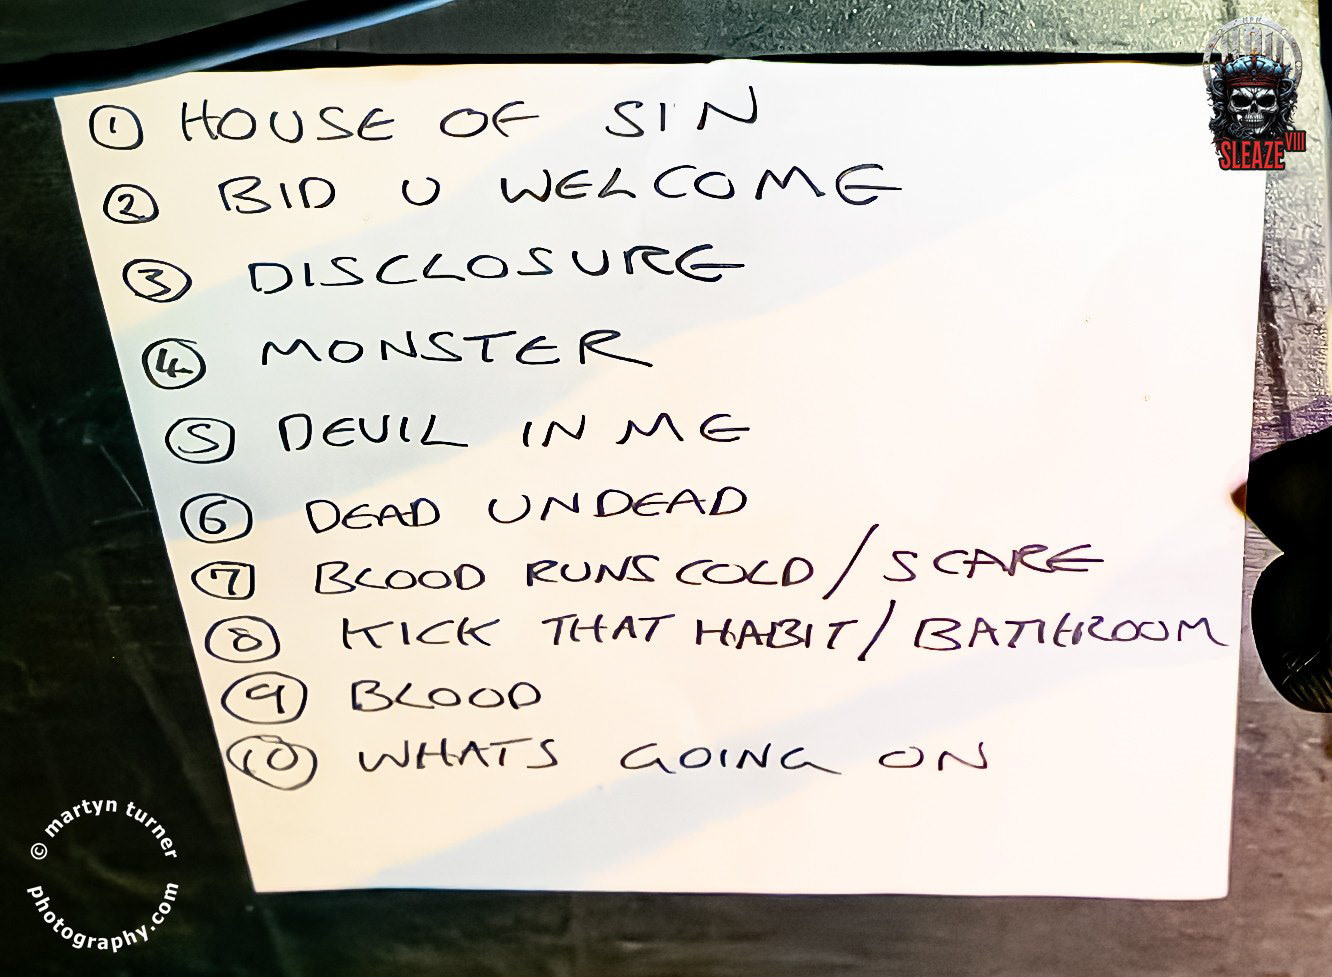 ① HOUSE OF SIN
② BID U WELCOME
③ DISCLOSURE
④ MONSTER
⑤ DEVIL IN ME
⑥ DEAD UNDEAD
⑦ BLOOD RUNS COLD / SCARE
⑧ KICK THAT HABIT / BATHROOM
⑨ BLOOD
⑩ WHATS GOING ON
SLEAZE VIII
© martyn turner
photography.com